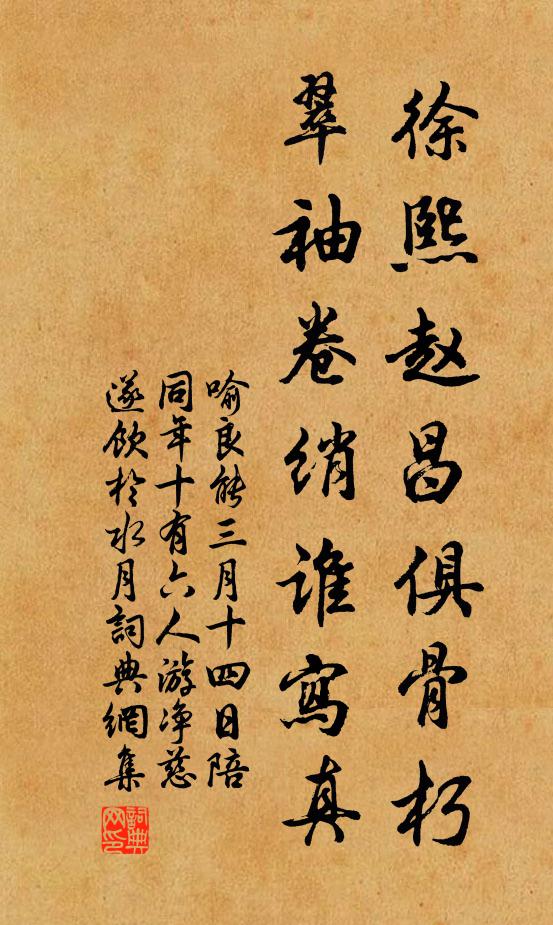 徐熙赵昌俱骨朽
翠袖卷绡谁寫真
喻良能三月十四日陪
同年十有六人游净慈
遂饮於水月詞典網集
詞典
网印